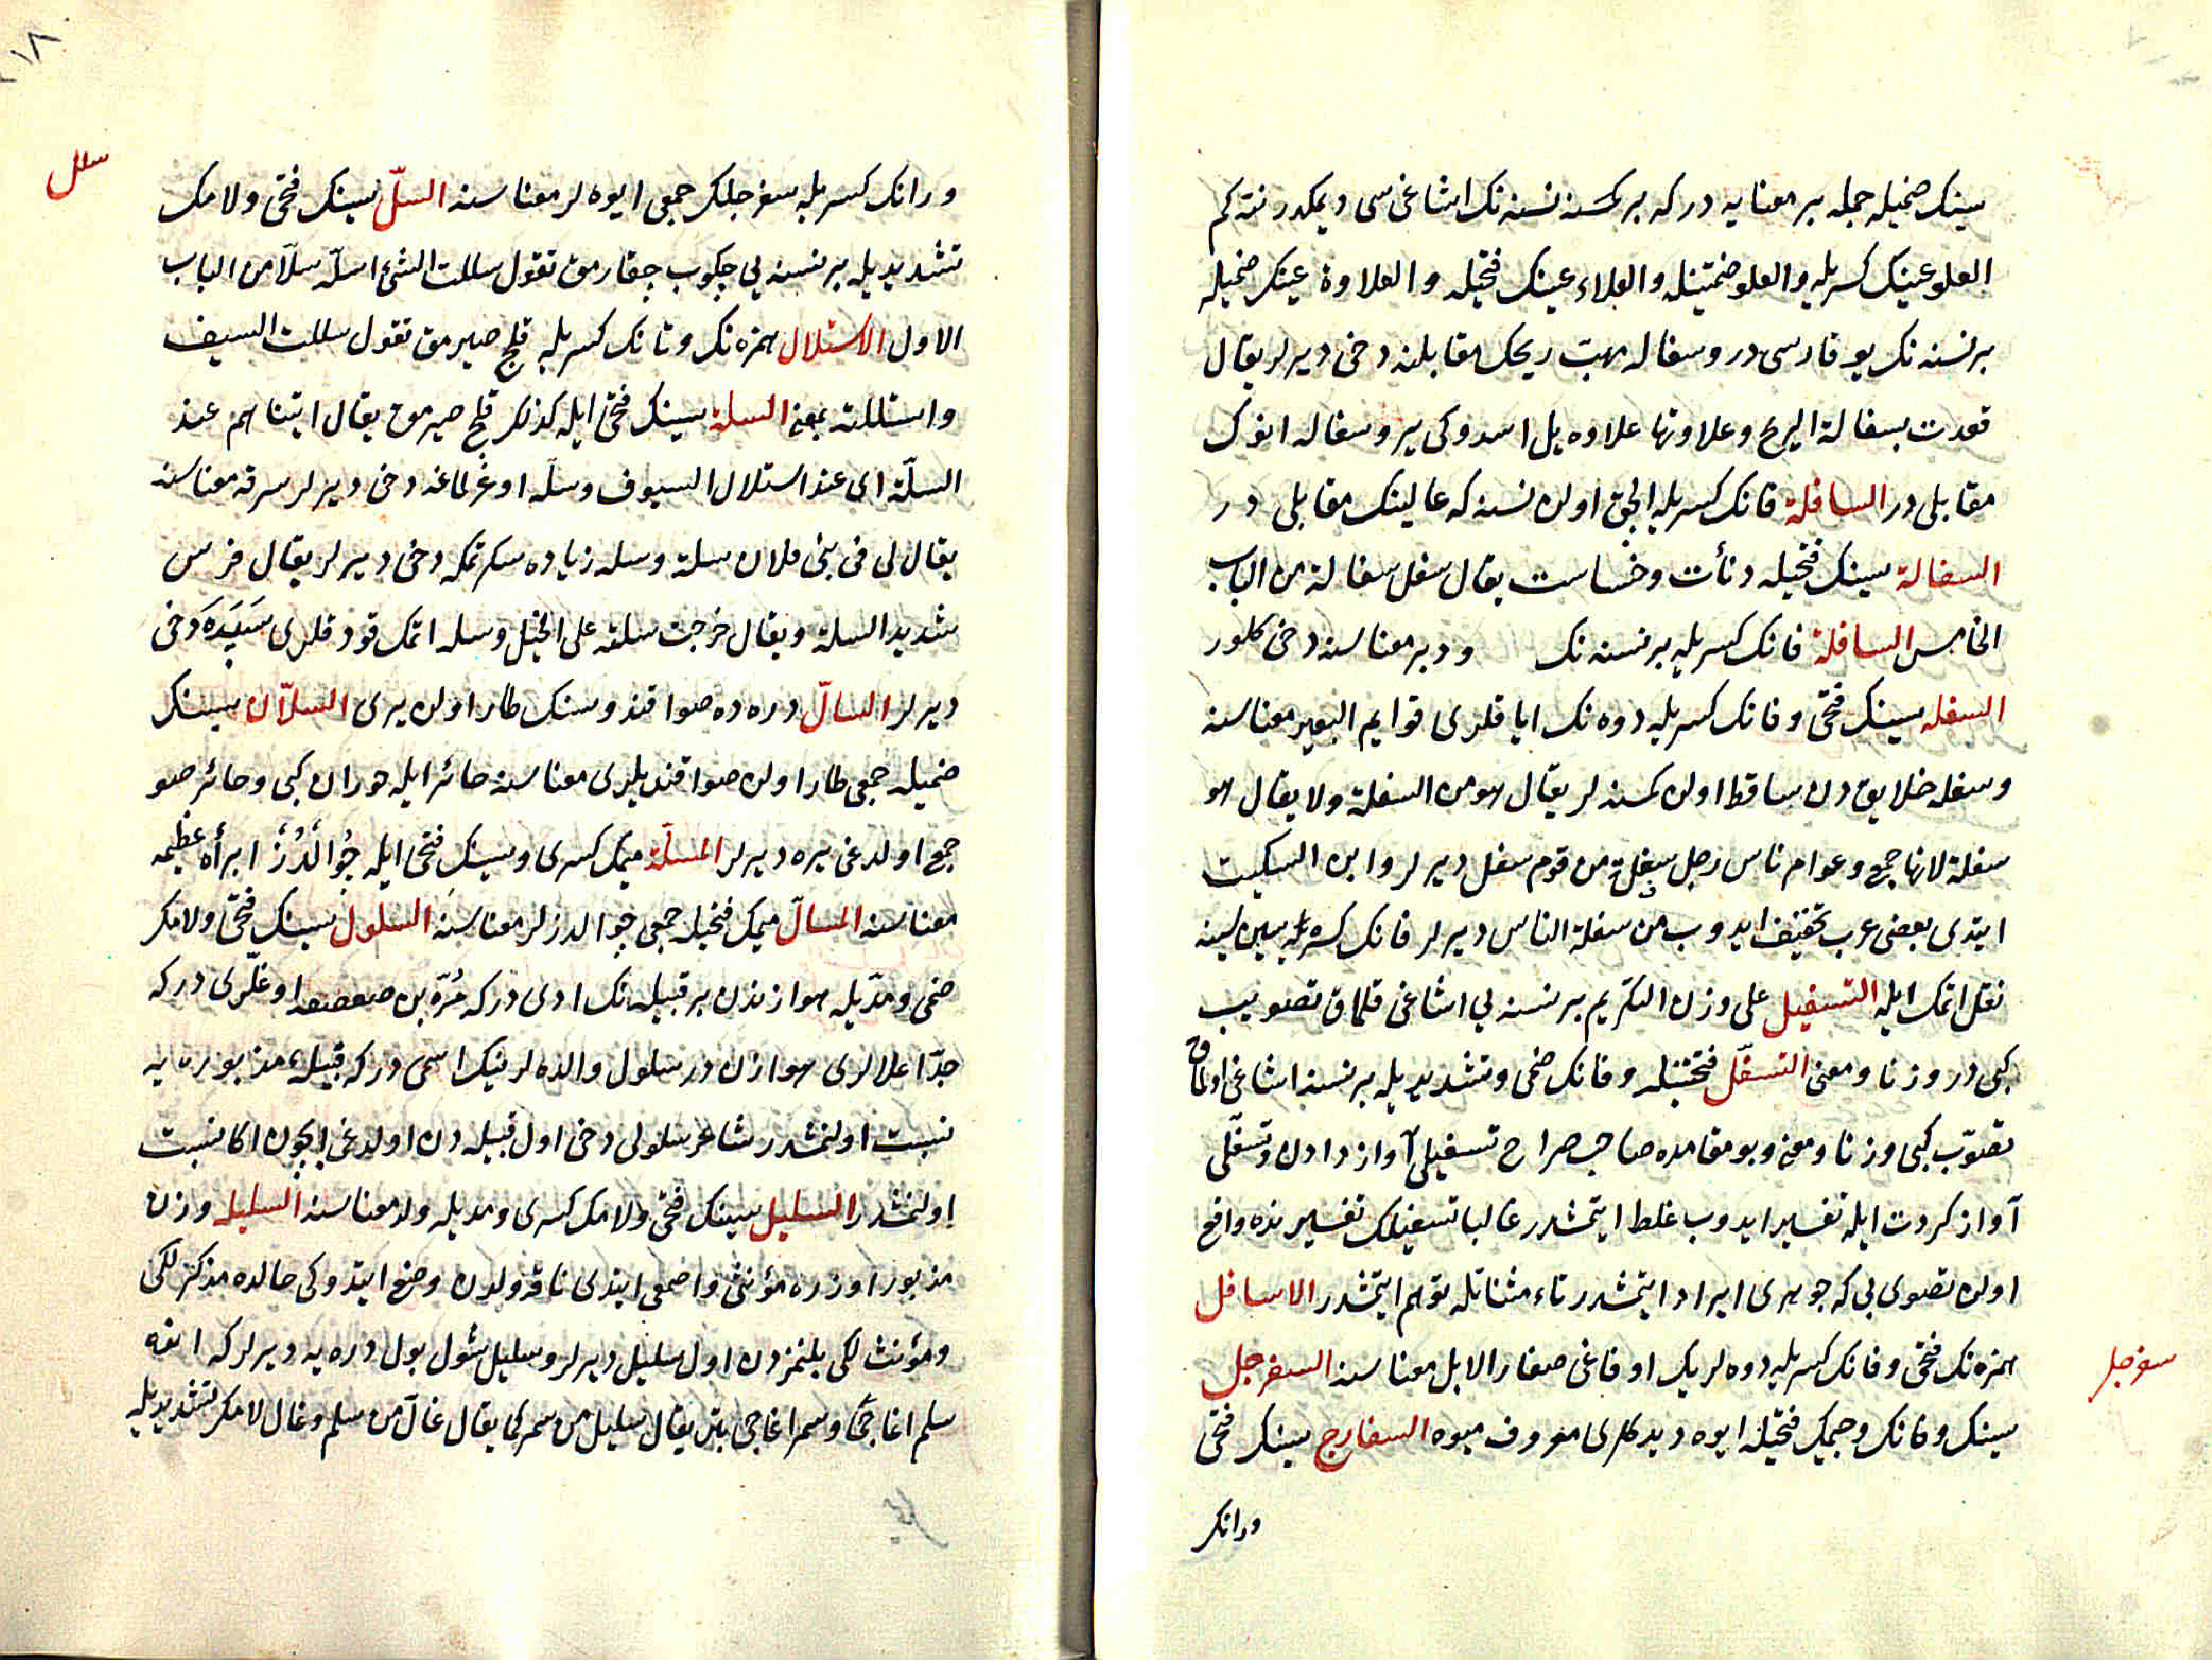 سينك ضميله جمله بر معنايه در كه بر كمسنه نسنه نك اشاغى سى ديمكدر نته كم
العلو عينك كسريله والعلو ضمتينله والعلاء عينك فتحيله والعلاوة عينك ضميله
بر نسنه نك يوقاروسى در وسفاله مهب ريحك مقابلنه دخى ديرلر يقال
قعدت بسفالة الريح وعلاوتها علاوه يل اسدوكى ير وسفاله انوك
مقابلى در السافلة فانك كسريله الچق اولن نسنه كه عالينك مقابلى در
السفالة سينك فتحيله دنأت وخساست يقال سفل سفالة من الباب
الخامس السافلة فانك كسريله بر نسنه نك ودبر معناسنه دخى كلور
السفله سينك فتحى وفانك كسريله دوه نك اياقلرى قوايم البعير معناسنه
وسفله خلايق دن ساقط اولن كمسنه لر يقال هو من السفلة ولا يقال هو
سفلة لانها جمع وعوام ناس رجل سفلة من قوم سفل ديرلر وابن السكيت
ايتدى بعضى عرب تخفيف ايدوب من سفلة الناس ديرلر فانك كسره سى سينه
نقل اتمك ايله التسفيل على وزن التكريم بر نسنه يى اشاغى قلماق تصويب
كبى در وزنا ومعنى التسفّل فتحتينله وفانك ضمى وتشديديله بر نسنه اشاغى اولماق
تصوّب كبى وزنا ومعنى وبو مقامده صاحب صراح تسفيلى آواز دادن وتسفّلى
آواز كردن ايله تفسير ايدوب غلط ايتمشدر غالبا تسفيلك تفسيرنده واقع
اولن تصوى يى كه جوهرى ايراد ايتمشدر تاء مثناتله توهم ايتمشدر الاسافل
همزه نك فتحى وفانك كسريله دوه لريك اوفاغى صغار الابل معناسنه السفرجل
سفرجل
سينك وفانك وجيمك فتحيله ايوه ديدكلرى معروف ميوه السفارج سينك فتحى
ورانك
١٨
ورانك كسريله سفرجلك جمعى ايوه لر معناسنه السلّ سينك فتحى ولامك
سلل
تشديديله بر نسنه يى چكوب چقارمق تقول سللت الشئ اسلّه سلّا من الباب
الاول الاستلال همزه نك وتانك كسريله قلج صيرمق تقول سللت السيف
واستللته بمعنى السلة سينك فتحى ايله كذلك قلج صيرمق يقال اتيناهم عند
السلّة اى عند استلال السيوف وسلّه اوغرلغه دخى ديرلر سرقه معناسنه
يقال لى فى بنى فلان سلة وسله زياده سكرتمكه دخى ديرلر يقال فرس
شديد السلة ويقال خرجت سلته على الخيل وسله اتمك قودقلرى سَپَدَه دخى
ديرلر السالّ دره ده صو اقندوسنك طار اولن يرى السلّان سينك
ضميله جمعى طار اولن صو اقنديلرى معناسنه حائر ايله حوران كبى وحائر صو
جمع اولدغى يره ديرلر المسلّة ميمك كسرى وسينك فتحى ايله جُوالْدُز ابرأه عظيمه
معناسنه المسالّ ميمك فتحيله جمعى جوالدزلر معناسنه السلول سينك فتحى ولامك
ضمى ومدّيله هوازندن بر قبيله نك ادى در كه مُرّه بن صعصعه اوغلّرى در كه
جدّ اعلالرى هوازن در سلول والده لرينك اسمى در كه قبيلۀ مذبوره يه
نسبت اولنمشدر شاعر سلولى دخى اول قبيله دن اولدغى ايچون اكا نسبت
اولنمشدر السليل سينك فتحى ولامك كسرى ومديله ولد معناسنه السليله وزن
مذبور اوزره مؤنثى واصمعى ايتدى ناقه ولدن وضع ايتدوكى حالده مذكرلكى
ومؤنث لكى بلنمزدن اول سليل ديرلر وسليل شول بول دره يه ديرلر كه انده
سلم اغاجى وسمر اغاجى بتر يقال سليل من سمر كما يقال غالّ من سلم وغال لامك تشديديله